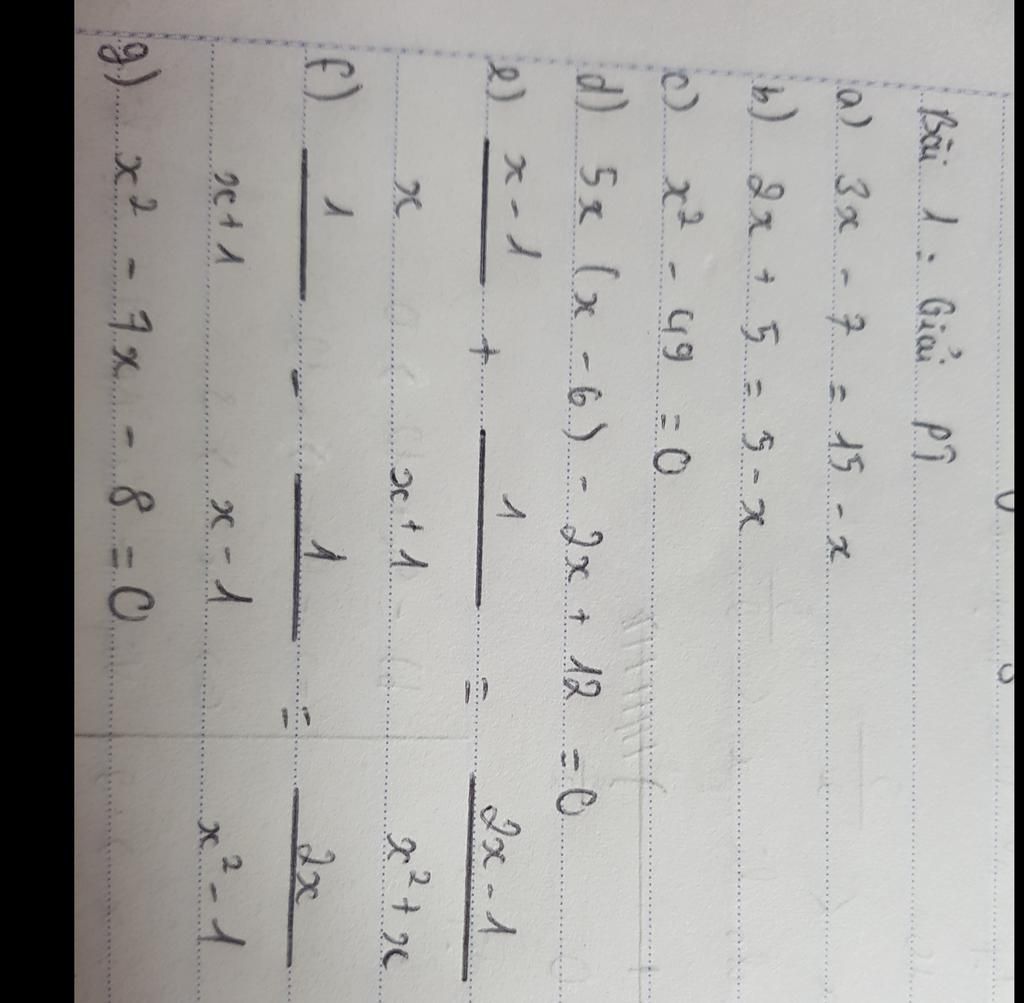 Bài 1 : Giải PT
a) 3x - 7 = 15 - x
b) 2x + 5 = 5 - x
c) x² - 49 = 0
d) 5x (x - 6) - 2x + 12 = 0
e) x - 1 / x + 1 / x + 1 = 2x - 1 / x² + x
f) 1 / x + 1 - 1 / x - 1 = 2x / x² - 1
g) x² - 7x - 8 = 0